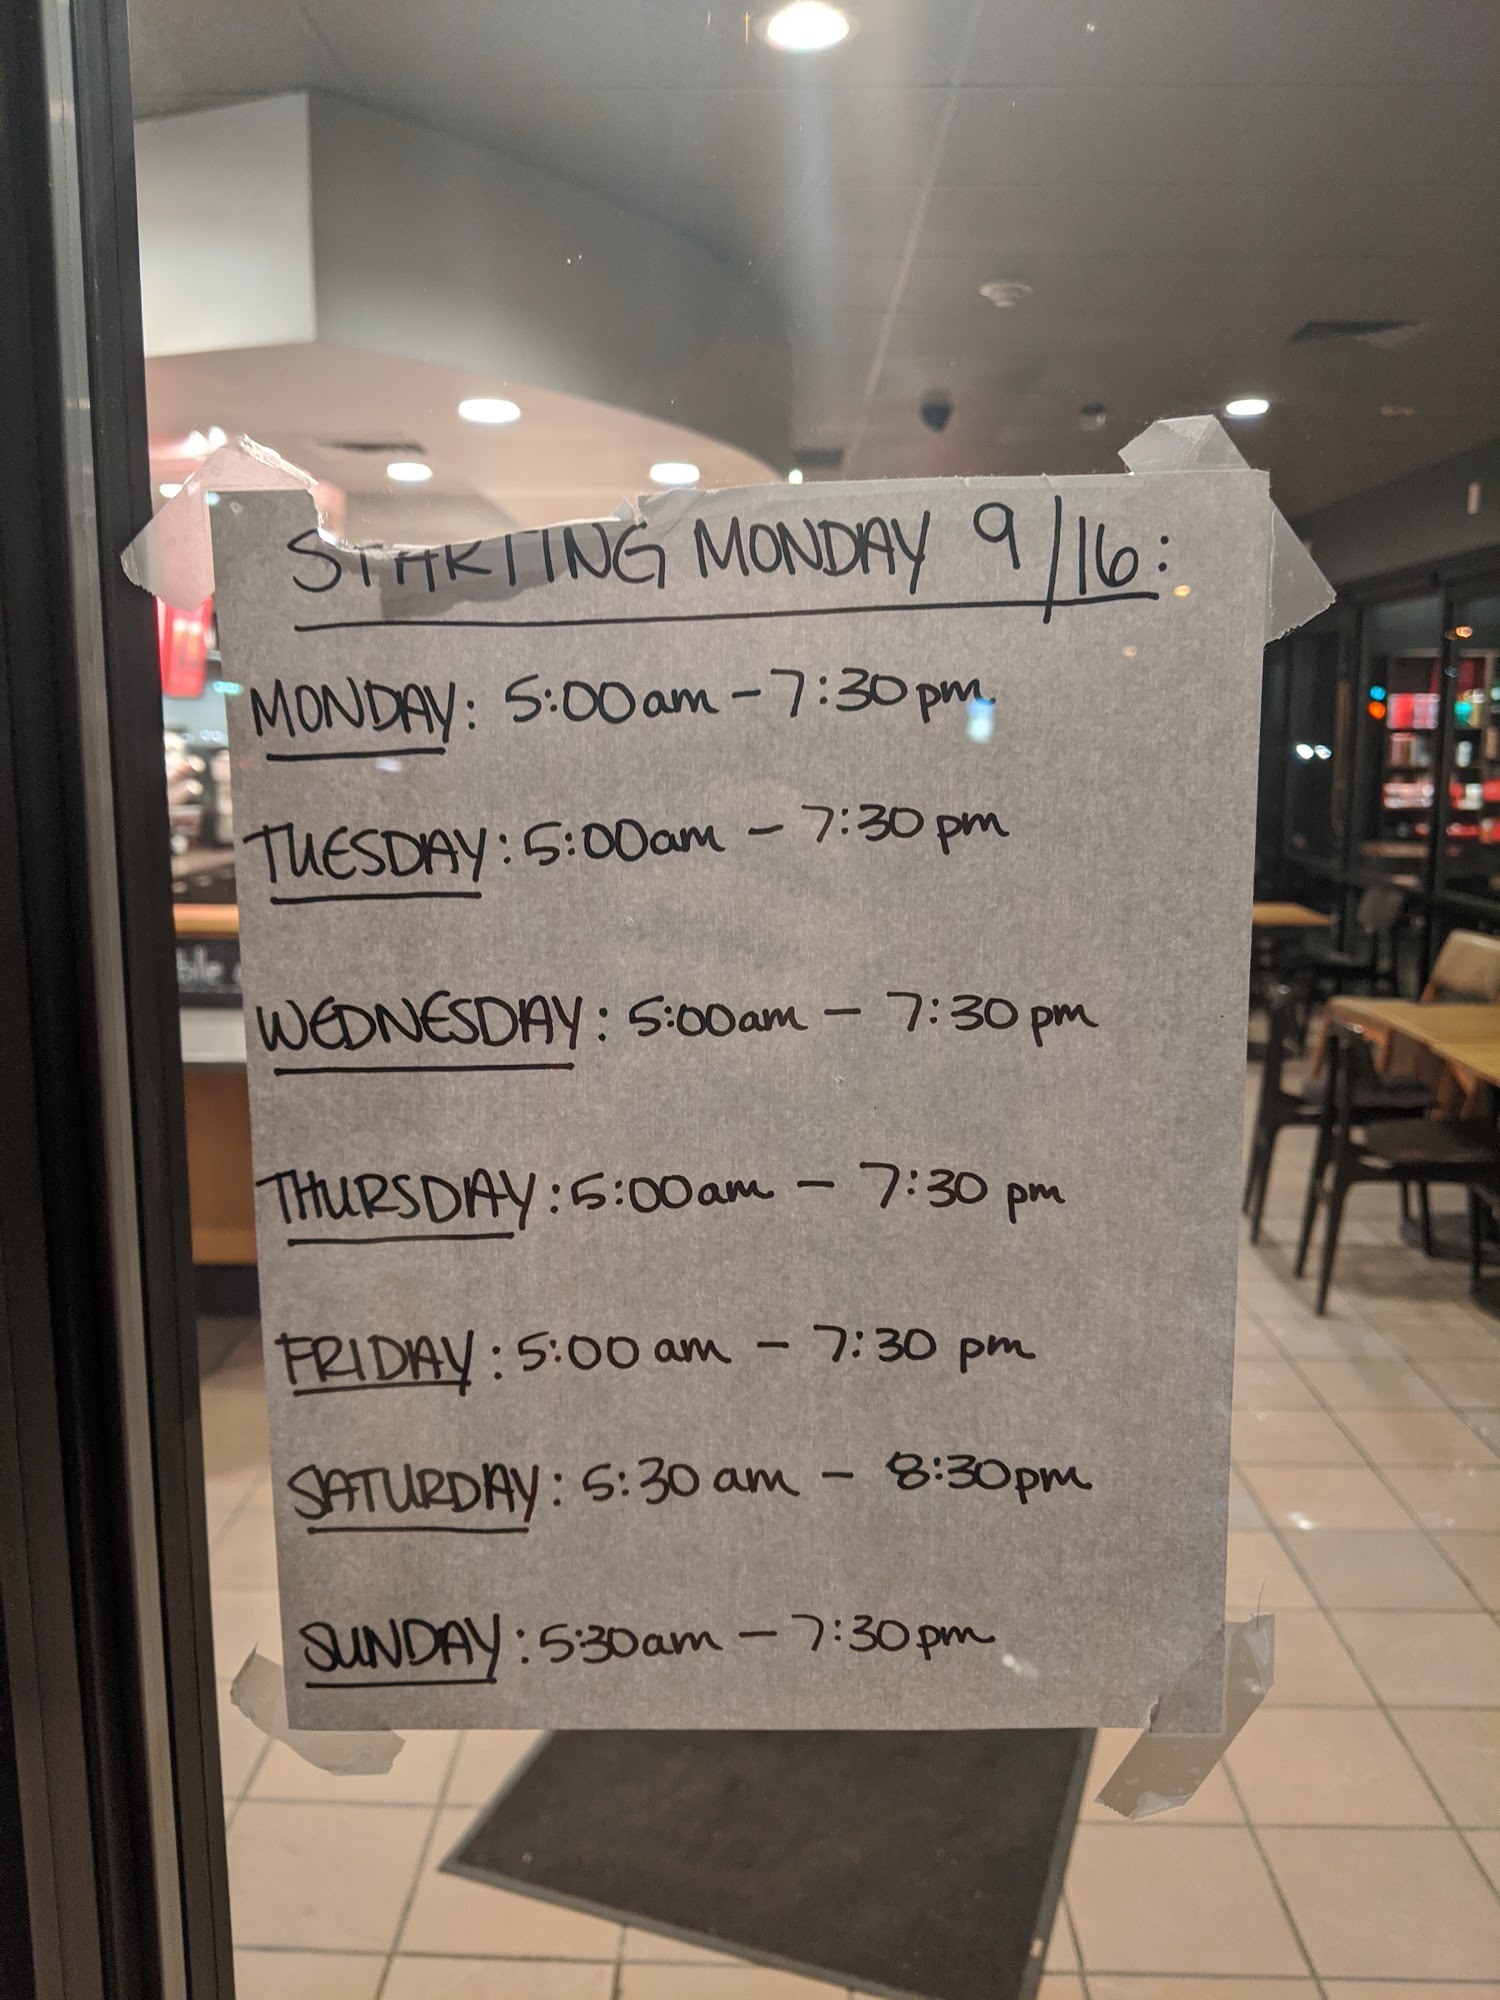 STARTING MONDAY 9/16:
MONDAY: 5:00am - 7:30pm
TUESDAY: 5:00am - 7:30pm
WEDNESDAY: 5:00am - 7:30pm
THURSDAY: 5:00am - 7:30 pm
FRIDAY: 5:00 am - 7:30 pm
SATURDAY: 5:30 am - 8:30pm
SUNDAY: 5:30am - 7:30pm